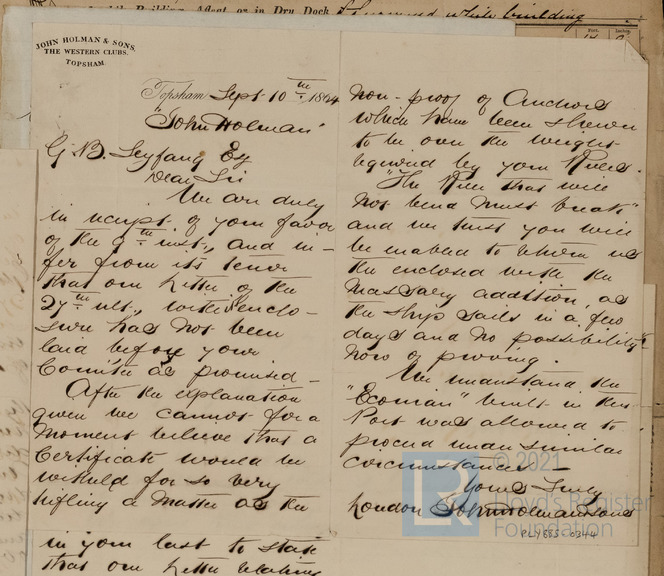 with Building, Afloat or in Dry Dock
building
JOHN HOLMAN & SONS,
THE WESTERN CLUBS.
TOPSHAM.
Topsham Sept 10th 1864
"John Holman"
G. B. Seyfang Esq
Dear Sir
We are duly
in receipt of your favor
of the 9th inst., and in-
fer from its tenor
that our letter of the
27th ult., with enclo-
sure has not been
laid before your
Comitee as promised -
After the explanation
given we cannot for a
moment believe that a
Certificate would be
witheld for so very
trifling a matter as the
in your last to state
that our letter relating
non-proof of Anchors
which have been shewn
to be over the weight
required by your Rules.
"The Rule that will
not bend must break"
and we trust you will
be enabled to return us
the enclosed with the
necessary addition, as
the ship sails in a few
days and no possibility
now of proving.
We understand the
built in this
Port was allowed to
proceed under similar
circumstances -
Yours truly
London John Holman & Sons
© 2021
LR
Lloyd's Register
Foundation
PLY883-0344